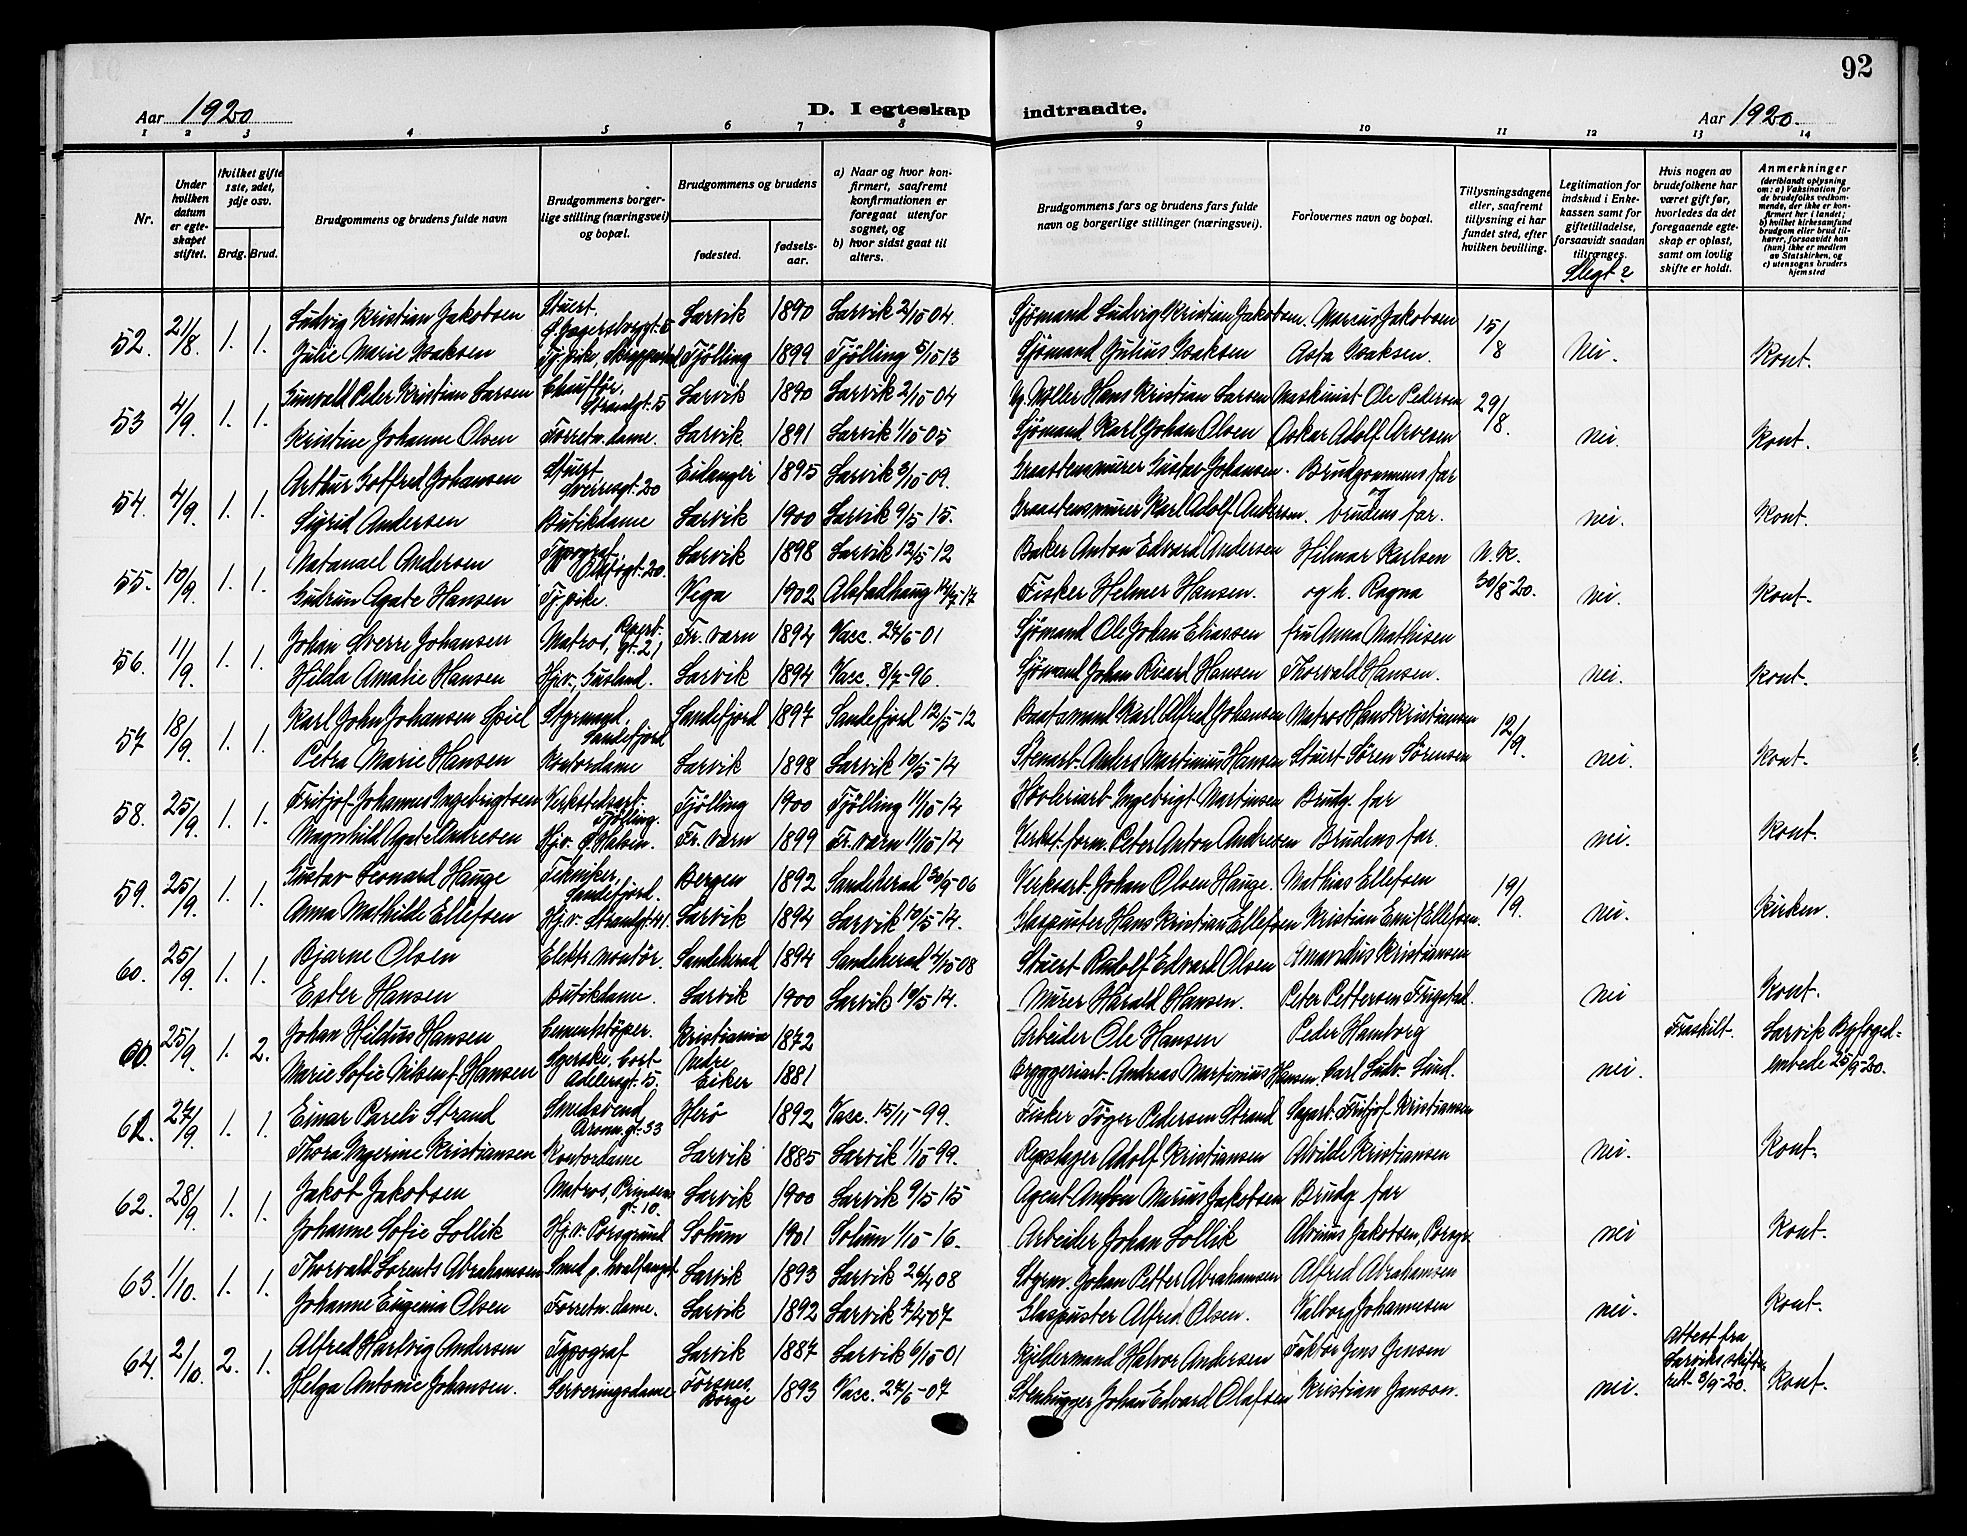 92
Aar 1920
D. I egteskap indtraadte.
Aar 1920.
1 2 3 4 5 6 7 8 9 10 11 12 13 14
Nr.
Under hvilken datum er egteskapet stiftet.
Hvilket gifte 1ste, 2det, 3dje osv.
Brdg. Brud.
Brudgommens og brudens fulde navn
Brudgommens borgerlige stilling (næringsvei) og bopæl.
Brudgommens og brudens
fødested.
fødselsaar.
a) Naar og hvor konfirmert, saafremt konfirmationen er foregaat utenfor sognet, og
b) hvor sidst gaat til alters.
Brudgommens fars og brudens fars fulde navn og borgerlige stillinger (næringsvei).
Forlovernes navn og bopæl.
Tillysningsdagene eller, saafremt tillysning ei har fundet sted, efter hvilken bevilling.
Legitimation for indskud i Enkekassen samt for giftetilladelse, forsaavidt saadan tiltrænges.
Slegt?
Hvis nogen av brudefolkene har været gift før, hvorledes da det foregaaende egteskap er opløst, samt om lovlig skifte er holdt.
Anmerkninger
(deriblandt oplysning om: a) Vaksination for de brudefolks vedkommende, der ikke er konfirmert her i landet; b) hvilket kirkesamfund brudgom eller brud tilhører, forsaavidt han (hun) ikke er medlem av Statskirken, og c) utensogns bruders hjemsted
52. 21/8. 1. 1. Ludvig Kristian Jakobsen Stuert Larvik 1890 Larvik 2/10 04. Sjømand Ludvig Kristian Jakobsen. Marcus Jakobsen 15/8
Julie Marie Isaksen Tjølling 1899 Tjølling 5/10 13 Sjømand Julius Isaksen Asta Isaksen. Nei. Kont.
53 4/9. 1. 1. Gunvald Peder Kristian Larsen Chauffør, Strandgt. 5 Larvik 1890 Larvik 2/10-04 Møller Hans Kristian Larsen Maskinist Ole Pedersen 29/8.
Kristine Johanne Olsen Forretn. dame. Larvik 1891 Larvik 1/10-05 Sjømand Karl Johan Olsen Oskar Adolf Arvesen nei. Kont.
54. 4/9. 1. 1. Arthur Gotfred Johansen Stuert Sverresgt. 20 Eidanger 1895 Larvik 3/10-09. Graastensmurer Gustav Johansen. Brudgommens far og
Sigrid Andersen Butikdame Larvik 1900 Larvik 9/5 15. Graastensmurer Karl Adolf Andersen. brudens far. nei. Kont.
55. 10/9. 1. 1. Natanael Andersen Typograf Larvik 1898 Larvik 12/5-12 Baker Anton Edvard Andersen Hilmar Karlsen
Gudrun Agate Hansen Tj.pike. Vega 1902 Alstadhaug 14/7-17 Fisker Helmer Hansen. og h. Ragna 30/8-20. nei. Kont.
56. 11/9. 1. 1. Johan Sverre Johansen Matros, gt. 21 Fr. værn 1894 Vacc. 24/6-01 Sjømand Ole Johan Eliassen fru Anna Mathisen
Hilda Amalie Hansen Hj.v., Gusland. Larvik 1894 Vacc. 8/7-96. Sjømand Johan Rivard Hansen Thorvald Hansen. nei. Kont.
57 18/9. 1. 1. Karl John Johansen Spiel Styrmand, Sandefjord Sandefjord 1897 Sandefjord 12/5-12 Baatsmand Karl Alfred Johansen Matros Hans Kristiansen 12/9.
Petra Marie Hansen Kontordame Larvik 1898 Larvik 10/5-14 Stenart. Anders Martinius Hansen Stuert Søren Sørensen nei. Kont.
58. 25/9. 1. 1. Fritjof Johannes Ingebrigtsen Verkstedsarb. Tjølling. Tjølling 1900 Tjølling 11/10-14 Høvleriarb. Ingebrigt Martinsen Brudg. far
Magnhild Agate Andresen Hj.v. Ø. Halsen. Fr. værn 1899 Fr. værn 11/10-14 Verkst. form. Peter Anton Andresen Brudens far. nei. Kont.
59. 25/9. 1. 1. Gustav Leonard Hauge Tekniker, Sandefjord. Bergen 1892 Sandeherad 30/9-06 Verksarb. Johan Olsen Hauge. Mathias Ellefsen 19/9.
Anna Mathilde Ellefsen Hj.v. Strandgt. 41. Larvik 1894 Larvik 10/5-14. Glaspuster Hans Kristian Ellefsen Kristian Emil Ellefsen. nei. Kirken.
60. 25/9. 1. 1. Bjarne Olsen Elektr. montør. Sandeherad 1894 Sandeherad 4/10-08 Stuert Rudolf Edvard Olsen Amandus Kristiansen
Ester Hansen Butikdame. Larvik 1900 Larvik 10/5 14. Murer Harald Hansen. Peter Pettersen Frigstad. nei Kont.
60. 25/9. 1. 2. Johan Hildus Hansen Cementstøper. Kristiania 1872 Arbeider Ole Hansen Peder Hamborg Fraskilt. Larvik Byfoged-
Marie Sofie Nilsen f. Hansen Adelersgt. 5. Nedre Eiker 1881 Bryggeriarb. Andreas Martinius Hansen. Carl Ludv. Lund. nei. embede 25/9-20.
61. 27/9. 1. 1. Einar Pareli Strand Smedsvend Herø 1892 Vacc. 15/11-99. Fisker Tøger Pedersen Strand Sagarb. Fritjof Kristiansen
Thora Ingerine Kristiansen Kontordame Larvik 1885 Larvik 1/10-99. Repslager Adolf Kristiansen Alvilde Kristiansen nei. Kont.
62. 28/9. 1. 1. Jakob Jakobsen Matros, Prinsens gt. 10. Larvik 1900 Larvik 9/5 15 Agent Anton Marius Jakobsen Brudg. far
Johanne Sofie Lollik Hj.v. Porsgrund Solum 1901 Solum 1/10-16. Arbeider Johan Lollik Alvius Jakobsen, Porsgr. nei Kont.
63. 1/10. 1. 1. Thorvald Lorents Abrahamsen Smed p. hvalfangst Larvik 1893 Larvik 26/4 08 Styrm. Johan Petter Abrahamsen Alfred Abrahamsen
Johanne Eugenia Olsen Forretn. dame. Larvik 1892 Larvik 7/4 07 Glaspuster Alfred Olsen. Valborg Johannesen nei. Kont.
64. 2/10. 2. 1. Alfred Hartvig Andersen Typograf Larvik 1887 Larvik 6/10-01 Kjeldermand Halvor Andersen Faktor Jens Jensen Attest fra Larviks skifterett 3/9-20.
Helga Antonie Johansen. Serveringsdame Torsnes, Borge 1893 Vacc. 24/6-07 Stenhugger Johan Edvard Olafsen Kristian Janson. nei. Kont.